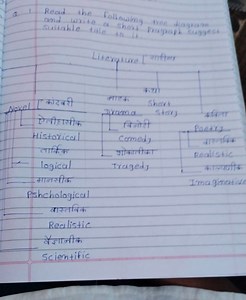 Q.1 Read the following tree diagram
and write a short Paragraph suggest
suitable title to it
Literature साहित्य
कथा
नाटक Short
Novel कादंबरी Drama Story कविता
Poetry
Historical Comedy
तार्किक Realistic
logical Tragedy
Imaginative
Pshchological
वास्तविक
Realistic
Scientific